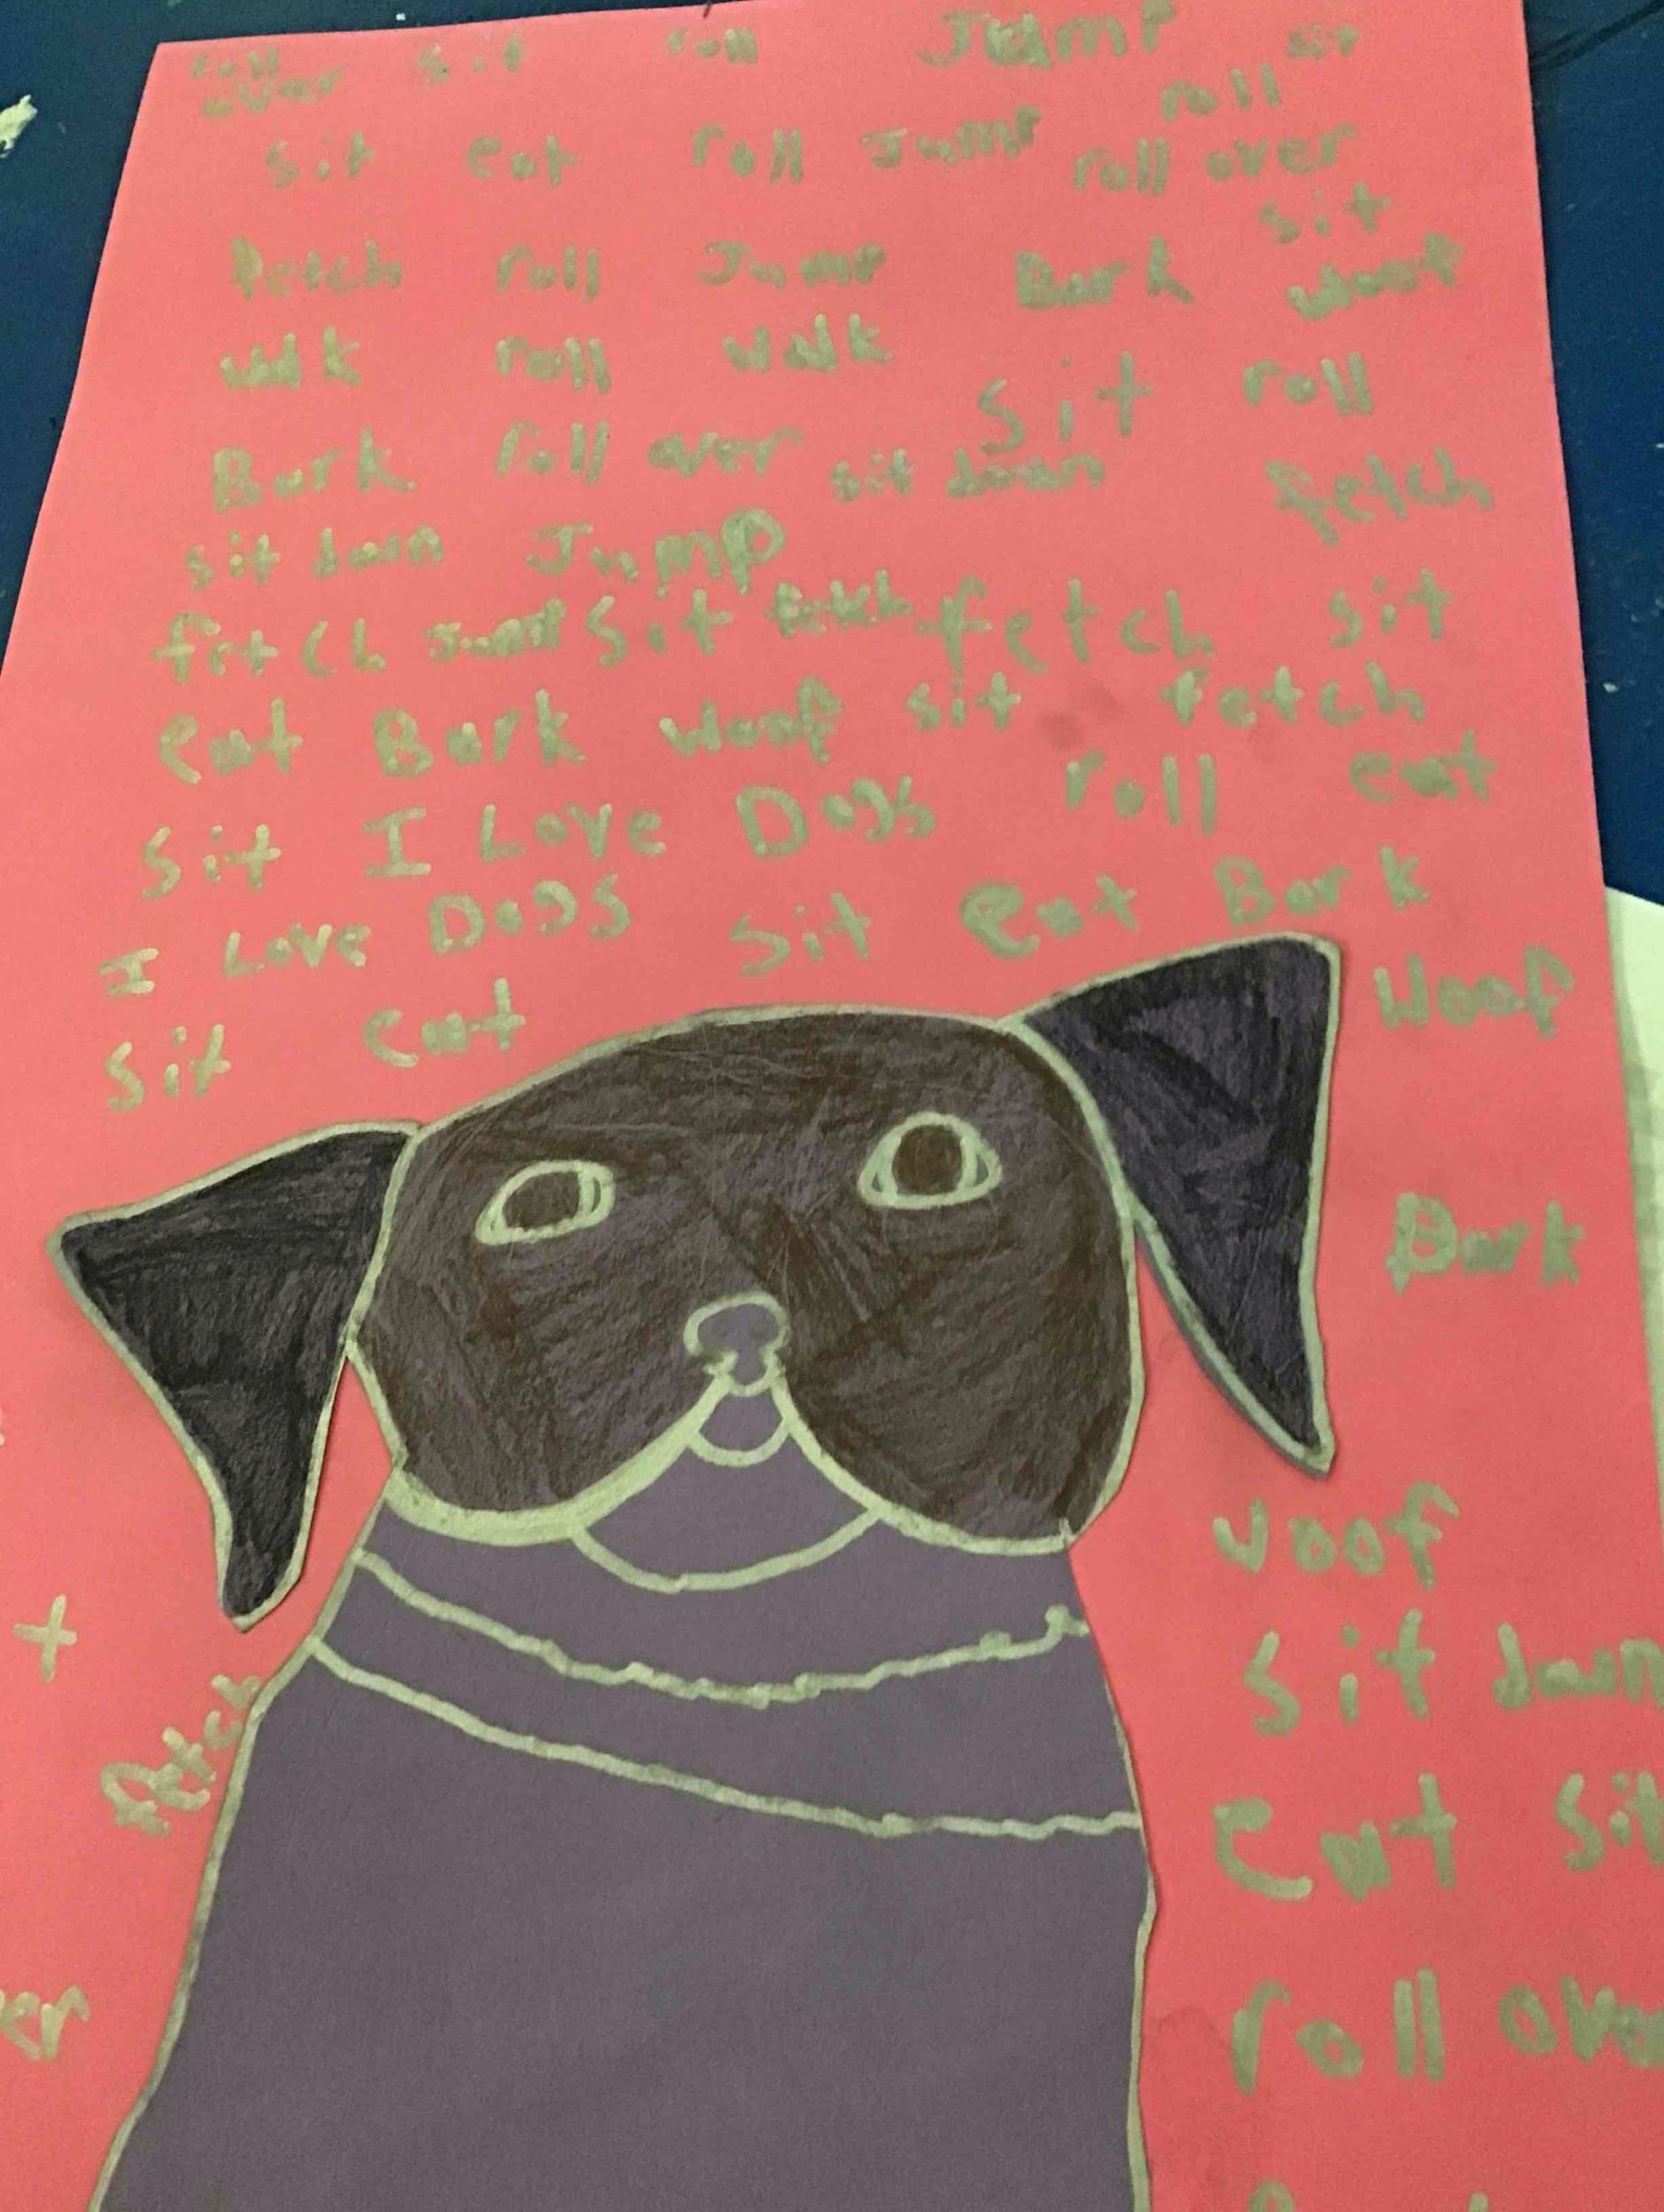 roll over sit roll Jump sit
roll
sit eat roll Jump roll over
sit
fetch roll Jump Bark woof
walk roll walk
sit roll
Bark roll over sit down fetch
sit down Jump
fetch Jump sit fetch fetch sit
eat Bark woof sit fetch
sit I Love Dogs roll eat
I Love Dogs sit eat Bark
sit eat woof
Bark
woof
sit down
fetch
eat sit
er roll over